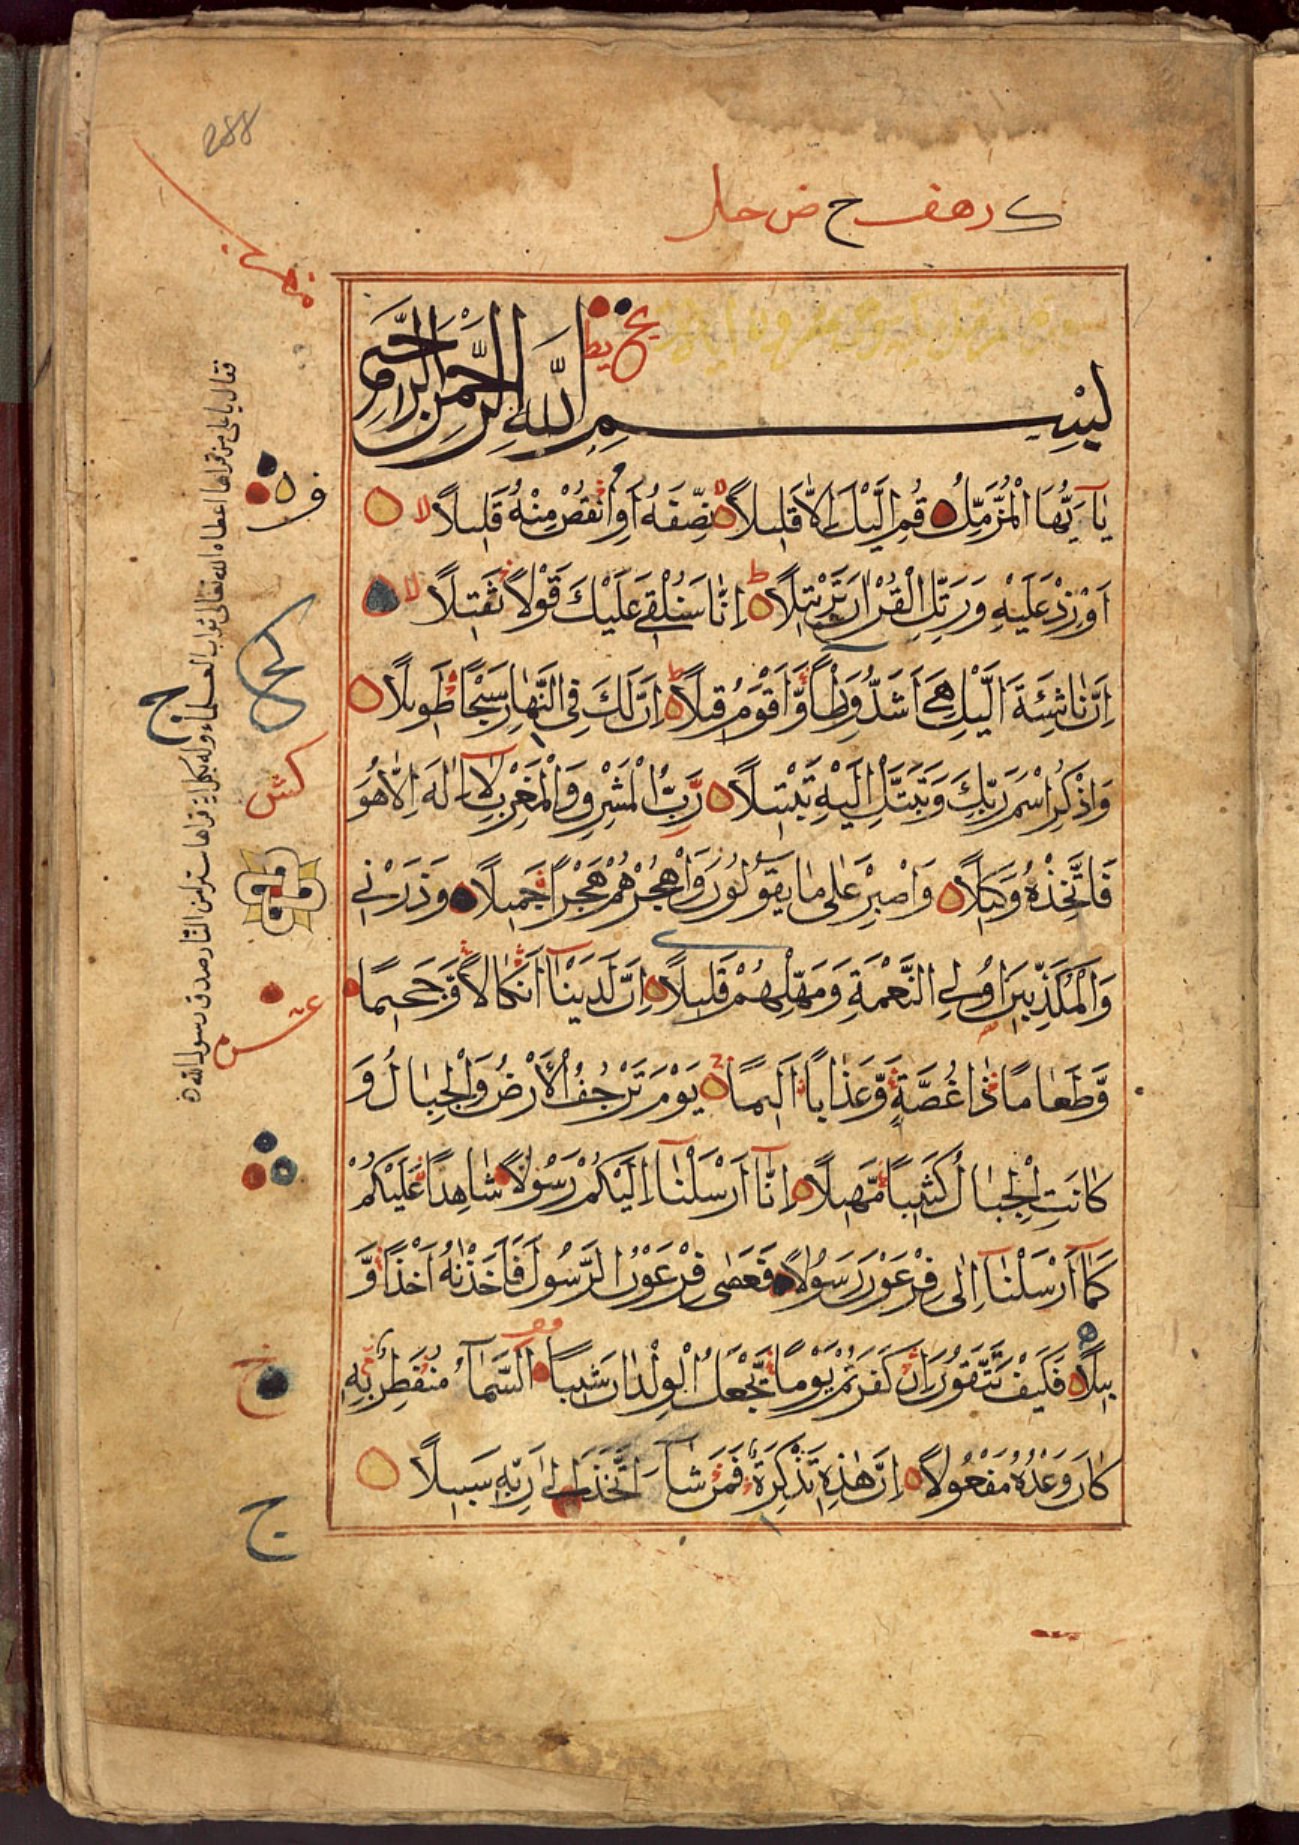 288
بِسْمِ اللَّهِ الرَّحْمَٰنِ الرَّحِيمِ
يَٰآ يُّهَا الْمُزَّمِّلُ قُمِ الَّيْلَ اِلَّا قَلِيلًا نِصْفَهُ اَوِ انْقُصْ مِنْهُ قَلِيلًا لا
اَوْ زِدْ عَلَيْهِ وَرَتِّلِ الْقُرْاٰنَ تَرْتِيلًا ط اِنَّا سَنُلْقِي عَلَيْكَ قَوْلًا ثَقِيلًا لا
اِنَّ نَاشِئَةَ الَّيْلِ هِيَ اَشَدُّ وَطْأً وَّاَقْوَمُ قِيلًا ط اِنَّ لَكَ فِي النَّهَارِ سَبْحًا طَوِيلًا
وَاذْكُرِ اسْمَ رَبِّكَ وَتَبَتَّلْ اِلَيْهِ تَبْتِيلًا رَبُّ الْمَشْرِقِ وَالْمَغْرِبِ لَا اِلَٰهَ اِلَّا هُوَ
فَاتَّخِذْهُ وَكِيلًا وَاصْبِرْ عَلٰى مَا يَقُولُونَ وَاهْجُرْهُمْ هَجْرًا جَمِيلًا وَذَرْنِي
وَالْمُكَذِّبِينَ اُولِي النَّعْمَةِ وَمَهِّلْهُمْ قَلِيلًا اِنَّ لَدَيْنَآ اَنْكَالًا وَّجَحِيمًا
وَّطَعَامًا ذَا غُصَّةٍ وَّعَذَابًا اَلِيمًا يَوْمَ تَرْجُفُ الْاَرْضُ وَالْجِبَالُ وَ
كَانَتِ الْجِبَالُ كَثِيبًا مَّهِيلًا اِنَّآ اَرْسَلْنَآ اِلَيْكُمْ رَسُولًا شَاهِدًا عَلَيْكُمْ
كَمَآ اَرْسَلْنَآ اِلٰى فِرْعَوْنَ رَسُولًا فَعَصٰى فِرْعَوْنُ الرَّسُولَ فَاَخَذْنٰهُ اَخْذًا وَّ
بِيلًا فَكَيْفَ تَتَّقُونَ اِنْ كَفَرْتُمْ يَوْمًا يَّجْعَلُ الْوِلْدَانَ شِيبًا السَّمَآءُ مُنْفَطِرٌ بِهِ
كَانَ وَعْدُهُ مَفْعُولًا اِنَّ هٰذِهِ تَذْكِرَةٌ فَمَنْ شَآءَ اتَّخَذَ اِلٰى رَبِّهِ سَبِيلًا
فقال يا علي من قراها اعطاه الله تعالى ثواب العلماء وله بكل اية قراها ستر من النار صدق رسول الله
ج
عشر
ج